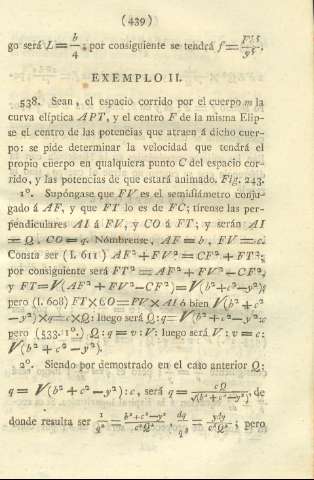 (439)
go será L = b/4 ; por consiguiente se tendrá f =
EXEMPLO II.
538. Sean, el espacio corrido por el cuerpo m la
curva elíptica APT, y el centro F de la misma Elip-
se el centro de las potencias que atraen á dicho cuer-
po: se pide determinar la velocidad que tendrá el
propio cuerpo en qualquiera punto C del espacio cor-
rido, y las potencias de que estará animado. Fig. 243.
1º. Supóngase que FV es el semidiámetro conju-
gado á AF, y que FT lo es de FC; tírense las per-
pendiculares AI á FV, y CO á FT; y serán AI
= Q, CO = q. Nómbrense, AF = b, FV = c.
Consta ser (I. 611) AF² + FV² = CF² + FT²;
por consiguiente será FT² = AF² + FV² − CF²,
y FT = √(AF² + FV² − CF²) = √(b² + c² − y²);
pero (I. 608) FT × CO = FV × AI ó bien √(b² + c²
− y²) × q = c × Q: luego será Q : q = √(b² + c² − y²) : c
pero (533. 1º.) Q : q = v : V: luego será V : v = c :
√(b² + c² − y²).
2º. Siendo por demostrado en el caso anterior Q :
q = √(b² + c² − y²) : c, será q = cQ/√(b² + c² − y²), de
donde resulta ser 1/q² = (b² + c² − y²)/c²Q², dq/q³ = ydy/c²Q² ; pero